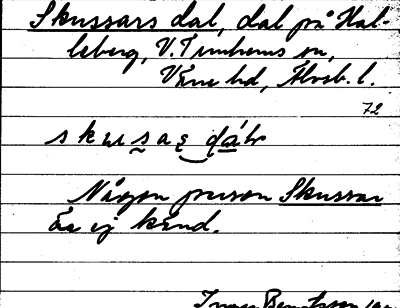 Skussars dal, dal på Hal-
leberg, V. Tunhems sn,
Väne hd, Älvsb. l.
72
Någon person Skussar
är ej känd.